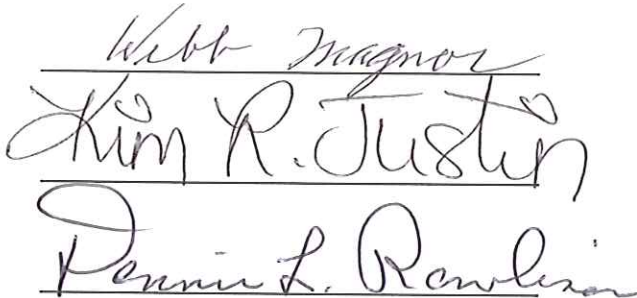 Webb Magnor
Kim R. Justin
Dennis L. Rawlison